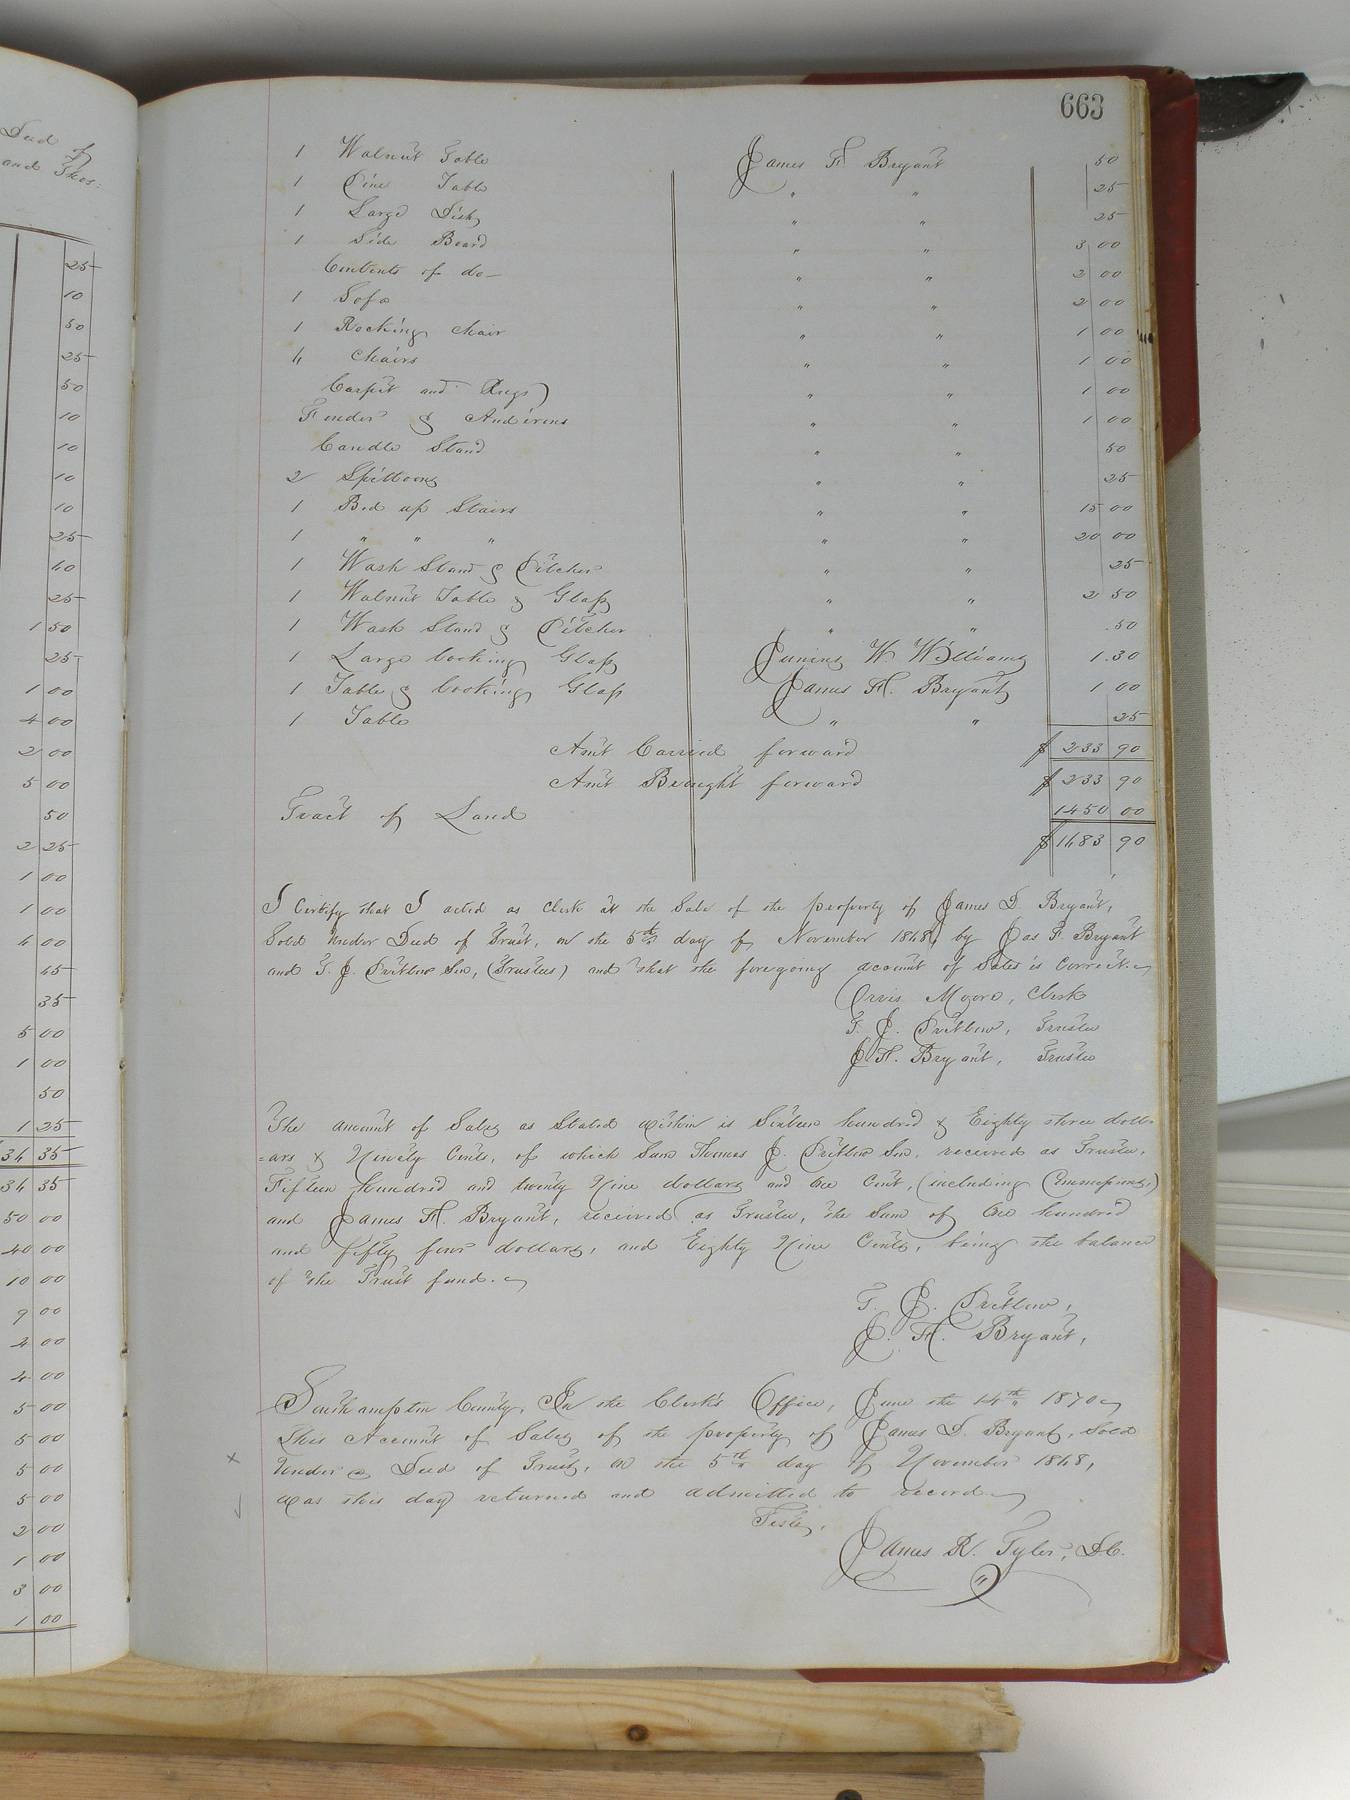 Deed of
and Thos:
25
10
50
25
50
10
10
10
10
25
60
25
1 50
25
1 00
4 00
2 00
5 00
50
2 25
1 00
1 00
6 00
45
35
5 00
1 00
50
1 25
34 35
34 35
50 00
40 00
10 00
9 00
2 00
4 00
5 00
5 00
5 00
5 00
2 00
1 00
3 00
1 00
663
1 Walnut Table James F. Bryant 50
1 Pine Table " " 25
1 Large Dish " " 25
1 Side Board " " 3 00
Contents of do — " " 2 00
1 Sofa " " 2 00
1 Rocking Chair " " 1 00
6 Chairs " " 1 00
Carpet and Rugs " " 1 00
Fender & Andirons " " 1 00
Candle Stand " " 50
2 Spittoons " " 25
1 Bed up Stairs " " 15 00
1 " " " " " 20 00
1 Wash Stand & Pitcher " " 25
1 Walnut Table & Glass " " 2 50
1 Wash Stand & Pitcher " " .50
1 Large looking Glass Junius W. Williams 1.30
1 Table & looking Glass James F. Bryant 1 00
1 Table " " 25
Amt Carried forward $ 233 90
Amt Brought forward $ 233 90
Tract of Land 1450 00
$ 1683 90
I Certify that I acted as Clerk at the Sale of the property of James D Bryant,
Sold under Deed of Trust, on the 5th day of November 1868, by Jas F. Bryant
and T. J. Pretlow Sen, (Trustees) and that the foregoing account of Sales is Correct.
Orris Moore, Clerk
T. J. Pretlow, Trustee
J. F. Bryant, Trustee
The amount of Sales as Stated within is Sixteen hundred & Eighty three doll-
=ars & Ninety Cents, of which Sum Thomas J. Pretlow Sen. received as Trustee,
Fifteen hundred and twenty Nine dollars and One Cent, (including Commissions,)
and James F. Bryant, received as Trustee, the Sum of One hundred
and fifty four dollars, and Eighty Nine Cents, being the balance
of the Trust fund.
T. J. Pretlow,
J. F. Bryant,
Southampton County, In the Clerk's Office, June the 14th 1870
This Account of Sales of the property of James D. Bryant, Sold
Under a Deed of Trust, on the 5th day of November 1868,
was this day returned and admitted to record
Teste,
James R. Tyler, D.C.